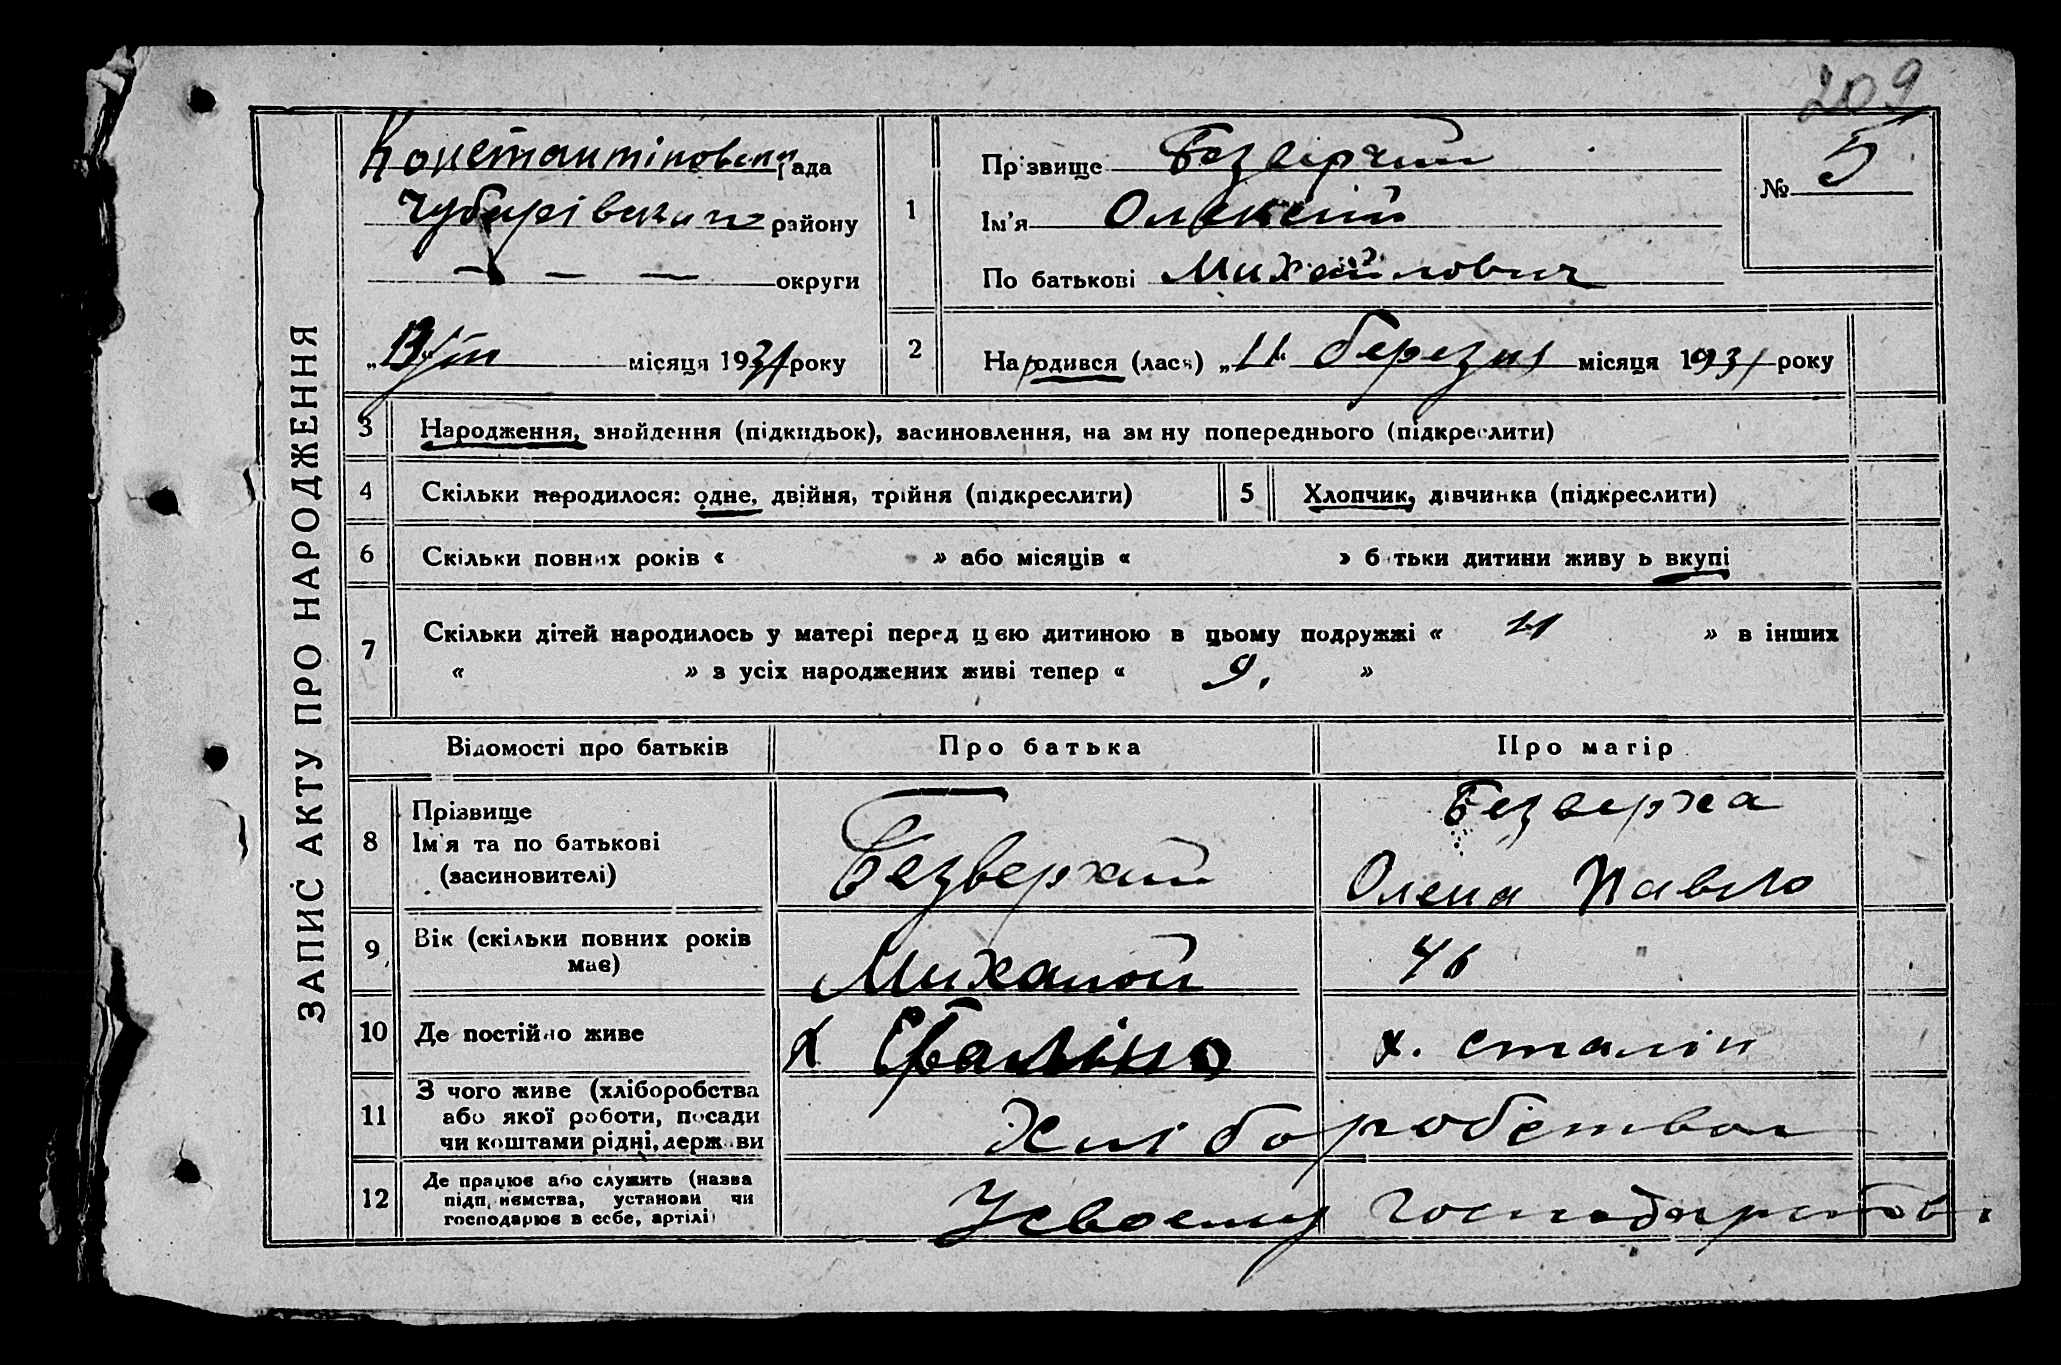 209
ЗАПИС АКТУ ПРО НАРОДЖЕННЯ
Константіновська рада
Чубарівський району
— — — округи
місяця 1931 року
1
Прізвище Безверхий
Ім'я Олексій
По батькові Михайлович
№ 5
2
Народився (лася) „11“ березня місяця 1931 року
3 Народження, знайдення (підкидьок), засиновлення, на зміну попереднього (підкреслити)
4 Скільки народилося: одне, двійня, трійня (підкреслити)
5 Хлопчик, дівчинка (підкреслити)
6 Скільки повних років « » або місяців « » батьки дитини живуть вкупі
7 Скільки дітей народилось у матері перед цією дитиною в цьому подружжі « » в інших
« » з усіх народжених живі тепер « 9. »
Відомості про батьків
Про батька
Про матір
8 Прізвище
Ім'я та по батькові
(засиновителі)
Безверхий
Безверха
Олена Павло
9 Вік (скільки повних років
має)
Михайлой
46
10 Де постійно живе
х Сталіно
х. Сталін
11 З чого живе (хліборобства
або якої роботи, посади
чи коштами рідні, держави
Хліборобством
12 Де працює або служить (назва
підприємства, установи чи
господарює в себе, артілі)
У своєму господарстві